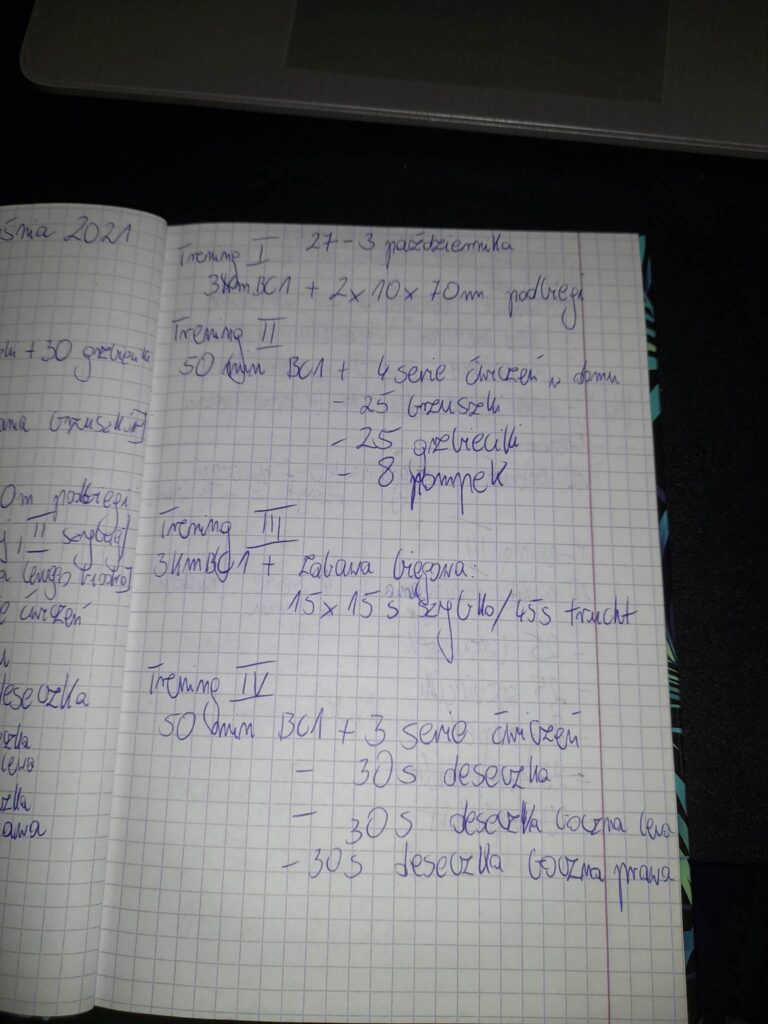 śnia 2021
+ 30 grzbieciki
0m podbiegi
, II szybciej
ćwiczeń
deseczka
lewa
awa
Trening I 27-3 października
3km BC1 + 2x10x70m podbiegi
Trening II
50 min BC1 + 4 serie ćwiczeń w domu
- 25 brzuszki
- 25 grzbieciki
- 8 pompek
Trening III
3km BC1 + zabawa biegowa:
15x15s szybko/45s trucht
Trening IV
50 min BC1 + 3 serie ćwiczeń
- 30s deseczka
- 30s deseczka boczna lewa
- 30s deseczka boczna prawa